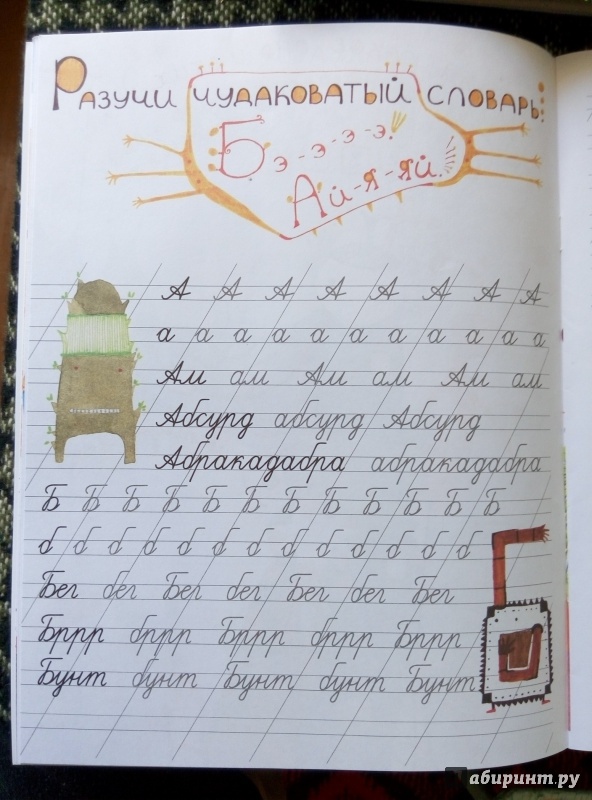 Разучи чудаковатый словарь:
Бэ-э-э-э.
Ай-я-яй.
А А А А А А А А
а а а а а а а а а а а
Ам ам Ам ам Ам ам
Абсурд абсурд Абсурд
Абракадабра абракадабра
Б Б Б Б Б Б Б Б Б Б Б Б
б б б б б б б б б б б б б
Бег бег Бег бег Бег бег Бег
Бррр бррр Бррр бррр Бррр
Бунт бунт Бунт бунт Бунт
абиринт.ру